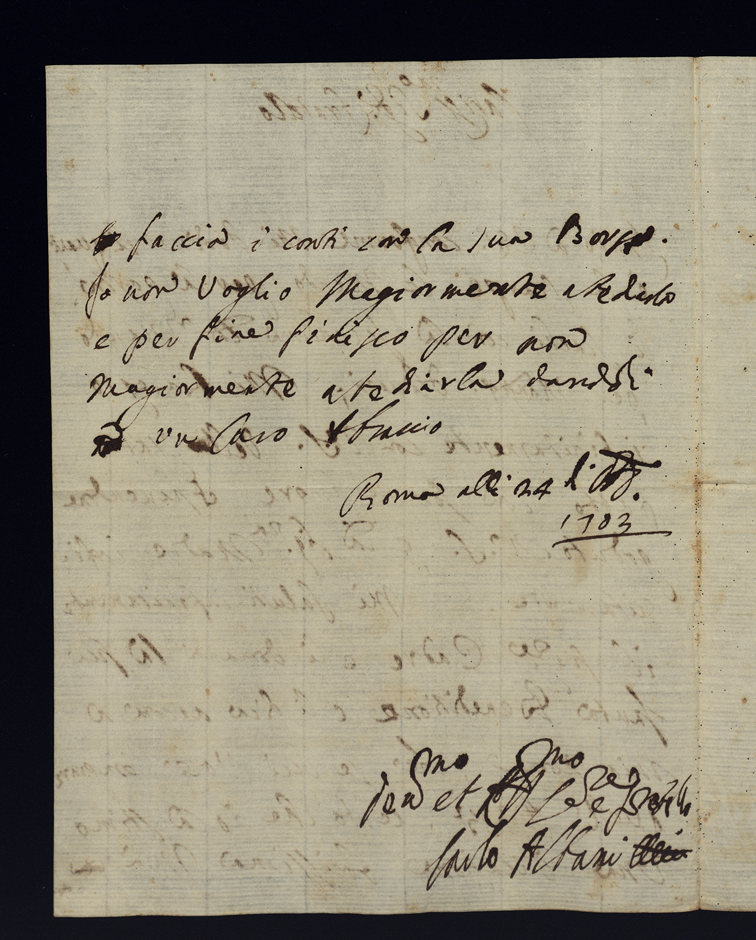 faccia i conti con la sua Borsa.
Io non Voglio Magiormente atediarlo
e per fine finisco per non
Magiormente atediarla dandoli
un Caro Abraccio
Roma alli 24 di
1703
mo mo
Dev et Aff Se re e Fratello
Carlo Albani